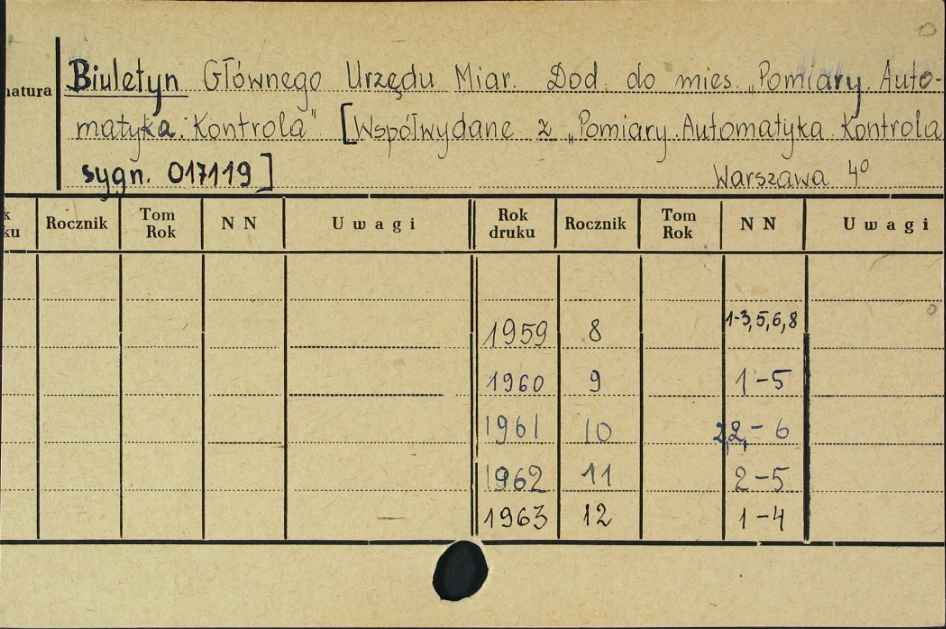 natura Biuletyn Głównego Urzędu Miar. Dod. do mies. „Pomiary. Auto-
matyka. Kontrola" [Współwydane z „Pomiary. Automatyka. Kontrola
sygn. 017119] Warszawa 4°
k ku Rocznik Tom Rok NN Uwagi Rok druku Rocznik Tom Rok NN Uwagi
1959 8 1-3,5,6,8
1960 9 1-5
1961 10 2,-6
1962 11 2-5
1963 12 1-4